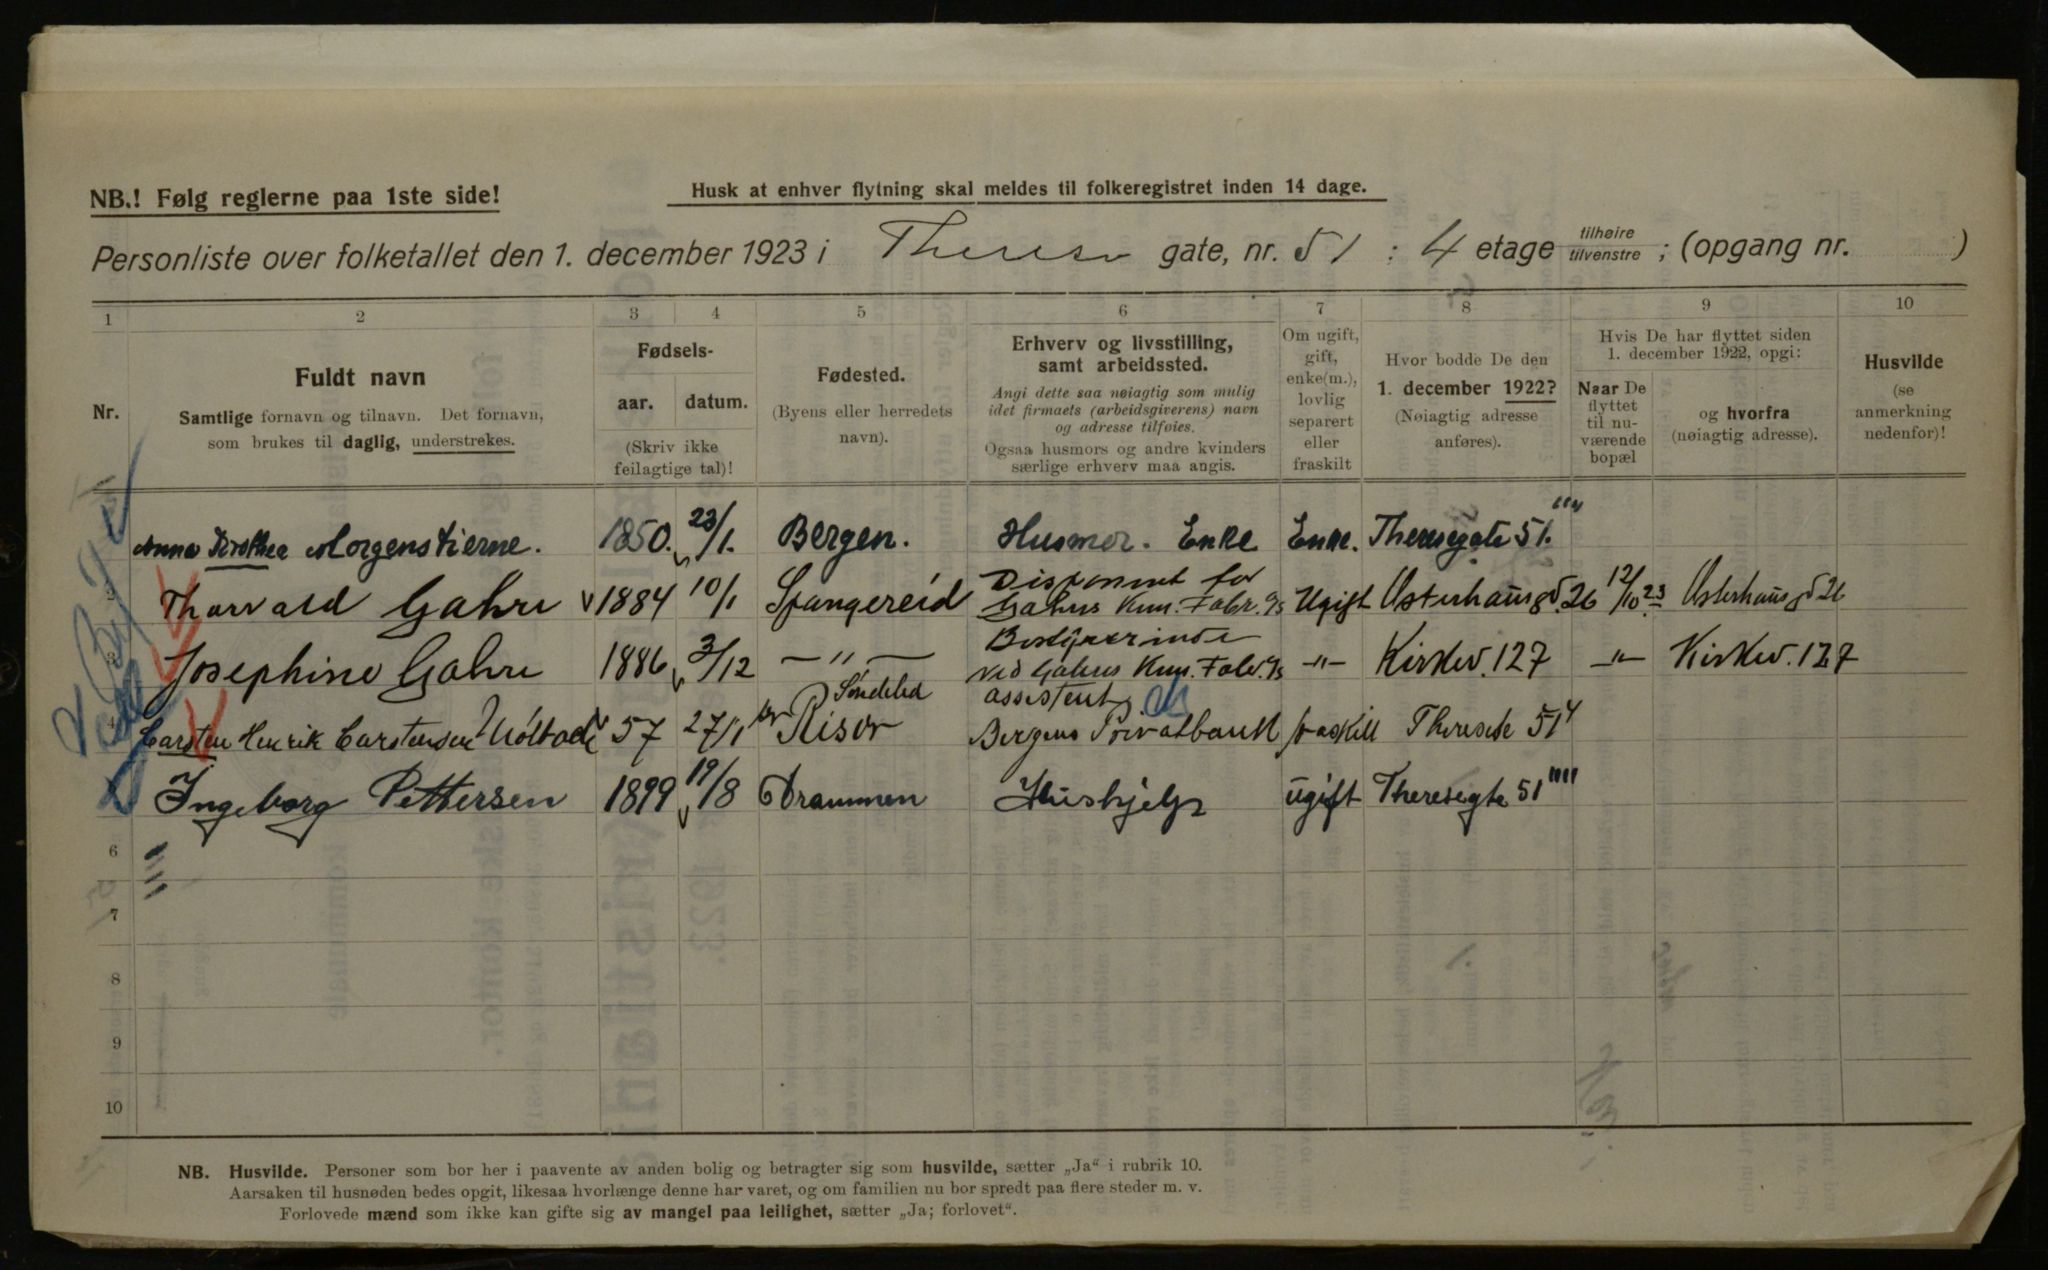 NB.! Følg reglerne paa 1ste side!
Husk at enhver flytning skal meldes til folkeregistret inden 14 dage.
Personliste over folketallet den 1. december 1923 i Therese gate, nr. 51 : 4 etage tilhøire tilvenstre ; (opgang nr. )
1 2 3 4 5 6 7 8 9 10
Nr.
Fuldt navn
Samtlige fornavn og tilnavn. Det fornavn,
som brukes til daglig, understrekes.
Fødsels-
aar. datum.
(Skriv ikke
feilagtige tal)!
Fødested.
(Byens eller herredets
navn).
Erhverv og livsstilling,
samt arbeidssted.
Angi dette saa nøiagtig som mulig
idet firmaets (arbeidsgiverens) navn
og adresse tilføies.
Ogsaa husmors og andre kvinders
særlige erhverv maa angis.
Om ugift,
gift,
enke(m.),
lovlig
separert
eller
fraskilt
Hvor bodde De den
1. december 1922?
(Nøiagtig adresse
anføres).
Hvis De har flyttet siden
1. december 1922, opgi:
Naar De
flyttet
til nu-
værende
bopæl
og hvorfra
(nøiagtig adresse).
Husvilde
(se
anmerkning
nedenfor)!
Anna Dorothea Morgenstierne. 1850. 23/1. Bergen. Husmor. Enke Enke. Theresegate 51.""
2 Thorvald Gahre 1884 10/1 Spangereid Disponent for
Gahres Kem. Fabr. A/S Ugift Osterhausgd. 26 12/10 23 Osterhausgd 26
3 Josephine Gahre 1886 3/12 —"— Bestyrerinde
ved Gahres Kem. Fabr. A/S —"— Kirkev. 127 —"— Kirkev. 127
4 Carsten Henrik Carstensen 57 27/1 Søndeled
pr Risør assistent
Bergens Privatbank fraskilt Theresete 51 4
Ingeborg Pettersen 1899 19/8 Drammen Hushjelp ugift Theresegte 51""
6
7
8
9
10
NB. Husvilde. Personer som bor her i paavente av anden bolig og betragter sig som husvilde, sætter „Ja“ i rubrik 10.
Aarsaken til husnøden bedes opgit, likesaa hvorlænge denne har varet, og om familien nu bor spredt paa flere steder m. v.
Forlovede mænd som ikke kan gifte sig av mangel paa leilighet, sætter „Ja; forlovet“.